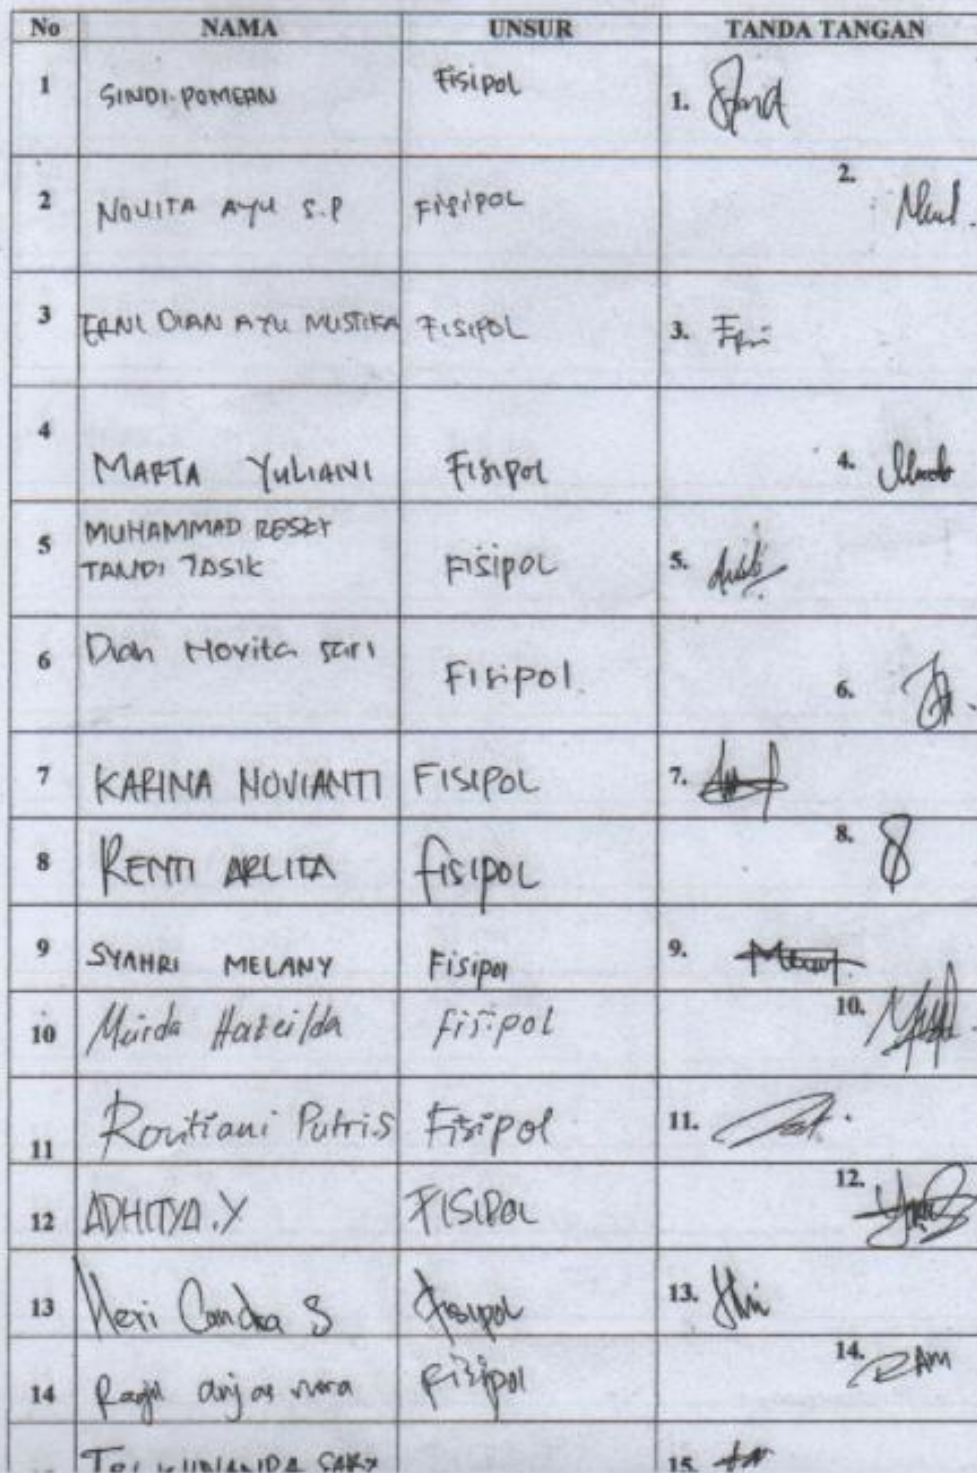 No NAMA UNSUR TANDA TANGAN
1 SINDI POMERN Fisipol 1.
2 NOVITA AYU S.P FISIPOL 2.
3 ERNI DIAN AYU MUSTIKA FISIPOL 3. Erni
4 MARTA YULIANI Fisipol 4.
5 MUHAMMAD RESKY
TANDI TASIK FISIPOL 5.
6 Dian Novita Sari Fisipol. 6.
7 KARINA NOVIANTI FISIPOL 7.
8 RENTI ARLITA fisipol 8.
9 SYAHRI MELANY Fisipol 9.
10 Murda Fisipol 10.
11 Routiani Putri.S Fisipol 11.
12 ADHITYA.Y FISIPOL 12.
13 Heri Candra S fisipol 13.
14 Ragil anjas mora fisipol 14. RAM
TRI SARI 15.